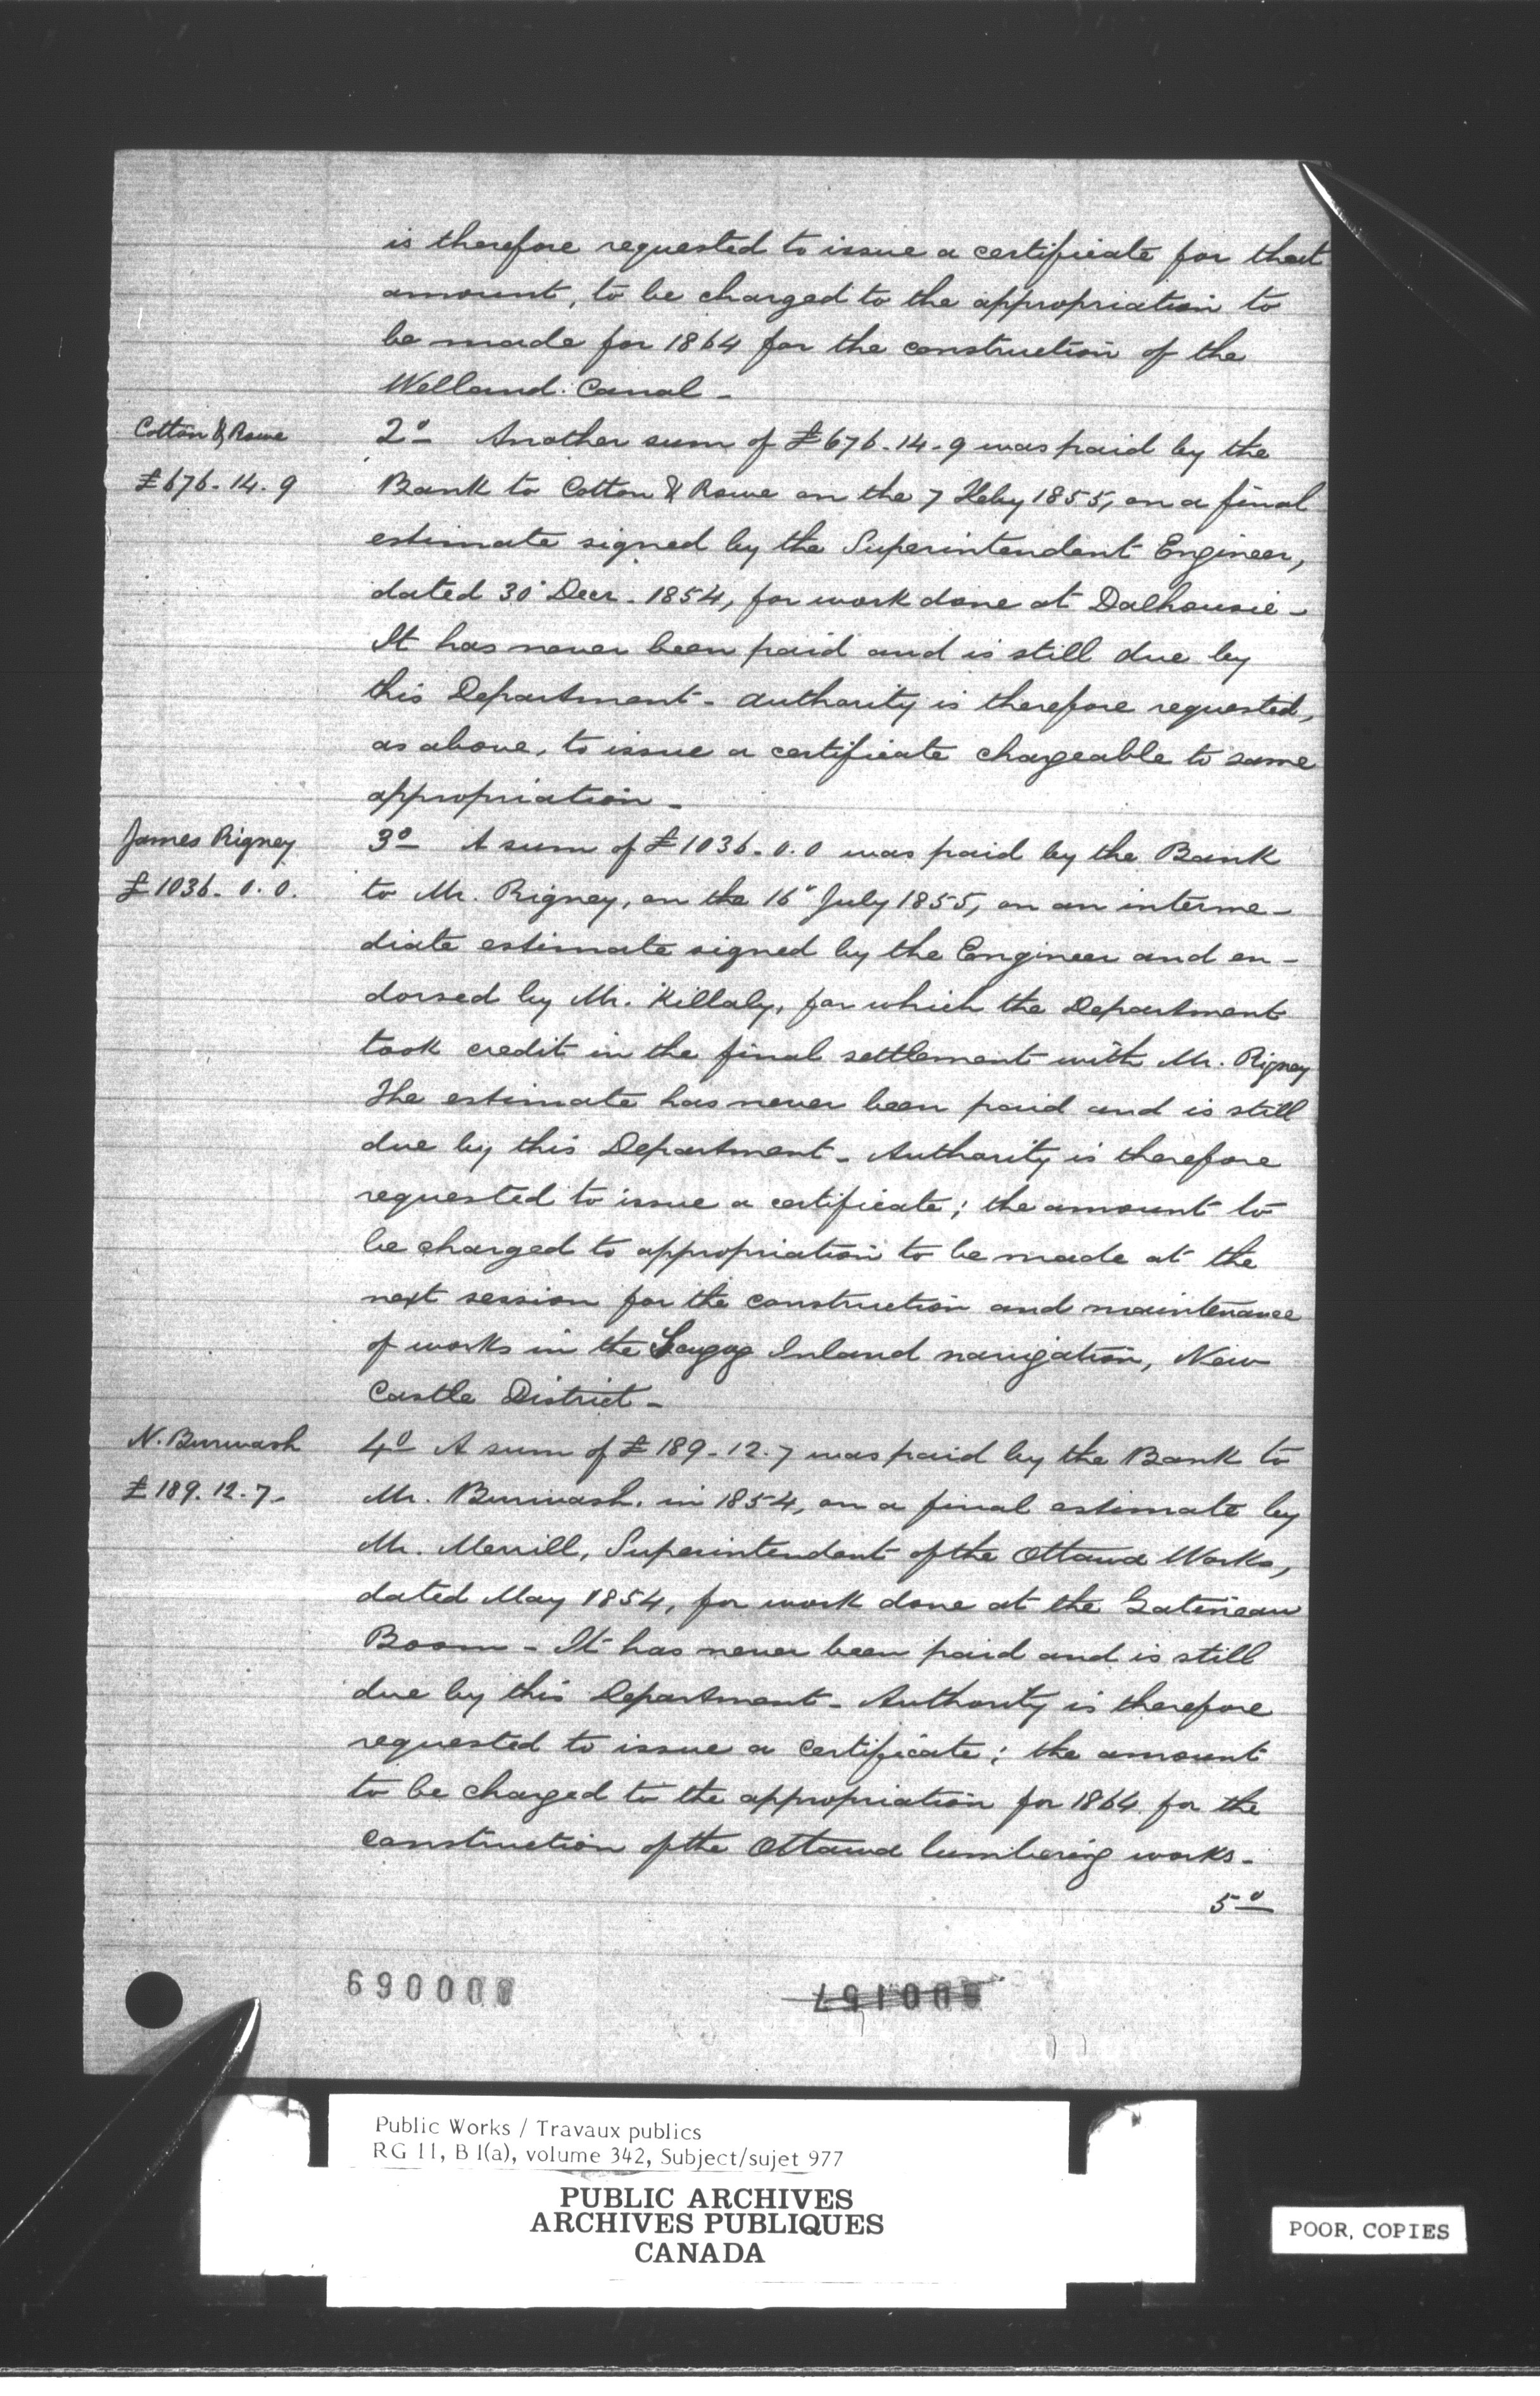 is therefore requested to issue a certificate for that
amount, to be charged to the appropriation to
be made for 1864 for the construction of the
Welland Canal -
Cotton & Rowe
£676. 14. 9
2º Another sum of £676-14-9 was paid by the
Bank to Cotton & Rowe on the 7 Feby 1855, on a final
estimate signed by the Superintendent Engineer,
dated 30 Decr. 1854, for work done at Dalhousie -
It has never been paid and is still due by
this Department - authority is therefore requested,
as above, to issue a certificate chargeable to same
appropriation -
James Rigney
£1036. 0. 0.
3º A sum of £1036. 0. 0 was paid by the Bank
to Mr. Rigney, on the 16 July 1855, on an interme-
diate estimate signed by the Engineer and en-
dorsed by Mr. Killaly, for which the Department
took credit in the final settlement with Mr. Rigney
The estimate has never been paid and is still
due by this Department - Authority is therefore
requested to issue a certificate; the amount to
be charged to appropriation to be made at the
next session for the construction and maintenance
of works in the Scugog Inland navigation, New
Castle District -
N. Burwash
£189. 12. 7.
4º A sum of £189-12.7 was paid by the Bank to
Mr. Burwash. in 1854, on a final estimate by
Mr. Merrill, Superintendent of the Ottawa Works,
dated May 1854, for work done at the Gatineau
Boom - It has never been paid and is still
due by this Department - Authority is therefore
requested to issue a certificate; the amount
to be charged to the appropriation for 1864 for the
construction of the Ottawa lumbering works -
5º
Public Works / Travaux publics
RG 11, B 1(a), volume 342, Subject/sujet 977
PUBLIC ARCHIVES
ARCHIVES PUBLIQUES
CANADA
POOR COPIES